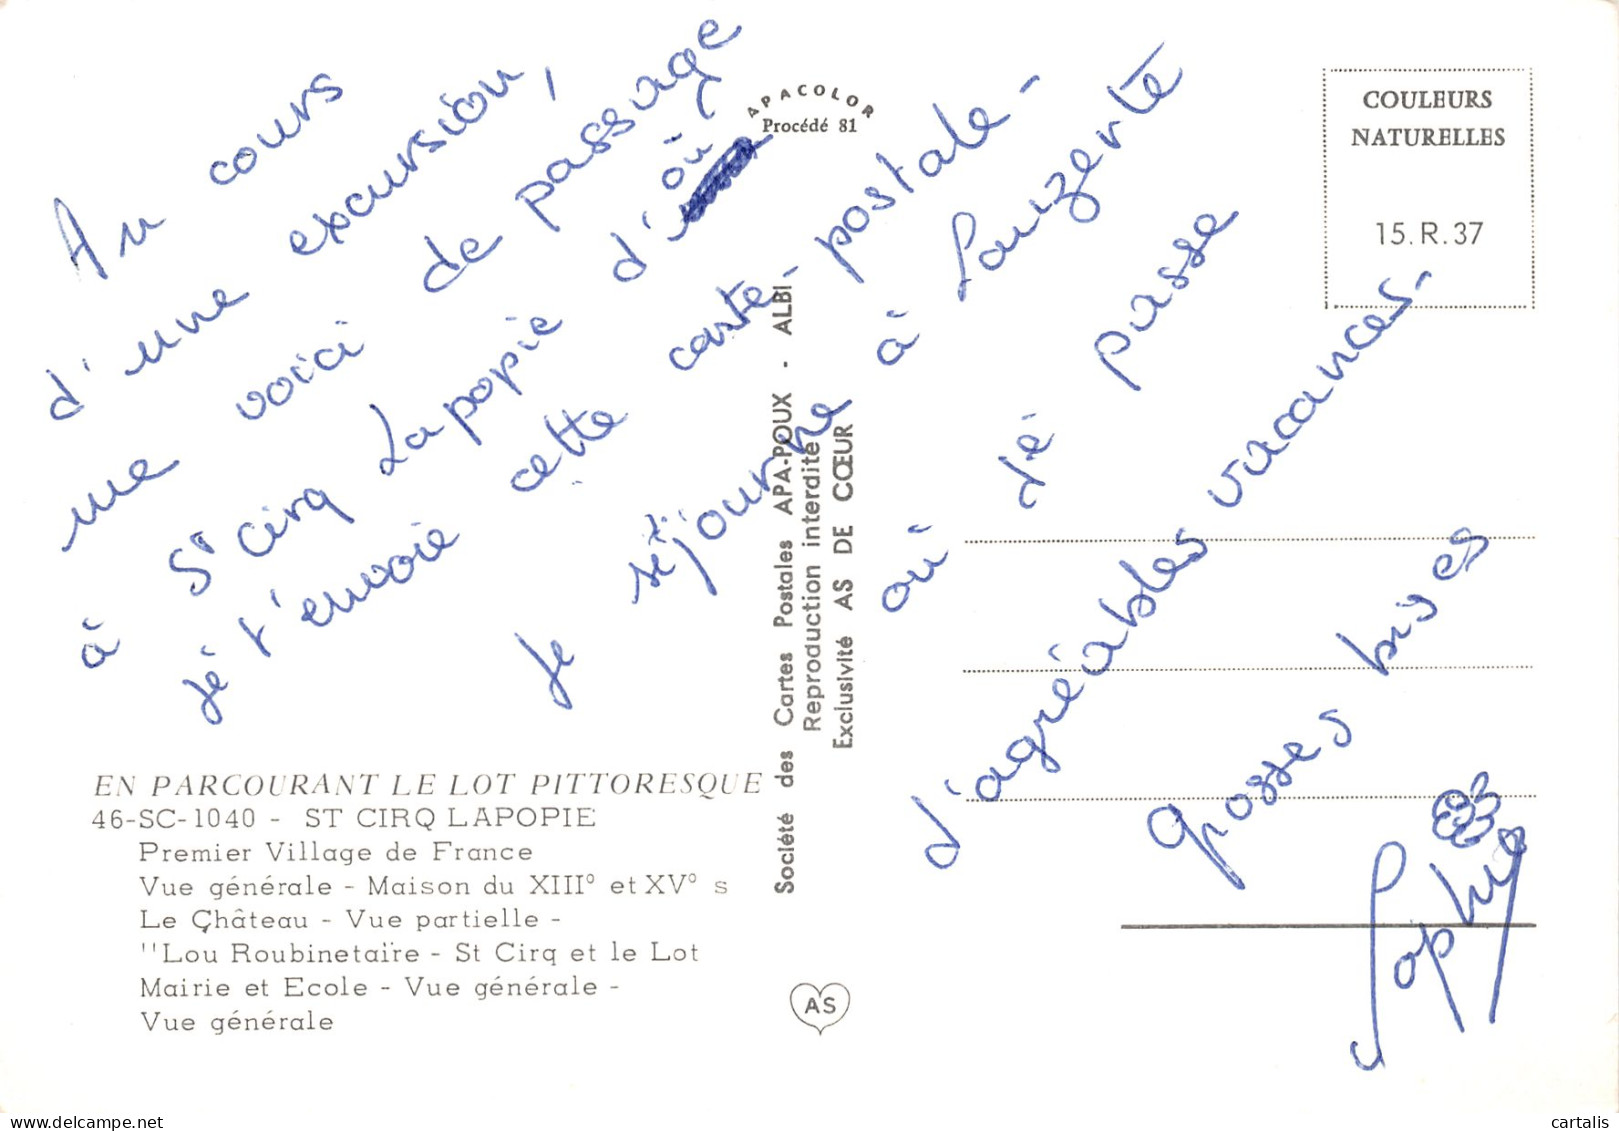 Au cours
d'une excursion,
me voici de passage
à St Cirq La popie d'où
je t'envoie cette carte-postale-
Je séjourne à Lauzerte
où je passe
d'agréables vacances.
Grosses bises
Sophie
APACOLOR
Procédé 81
COULEURS
NATURELLES
15.R.37
Société des Cartes Postales APA-POUX - ALBI
Reproduction interdite
Exclusivité AS DE CŒUR
EN PARCOURANT LE LOT PITTORESQUE
46-SC-1040 - ST CIRQ LAPOPIE
Premier Village de France
Vue générale - Maison du XIII° et XV° s
Le Château - Vue partielle -
"Lou Roubinetaïre - St Cirq et le Lot
Mairie et Ecole - Vue générale -
Vue générale
AS
cartalis